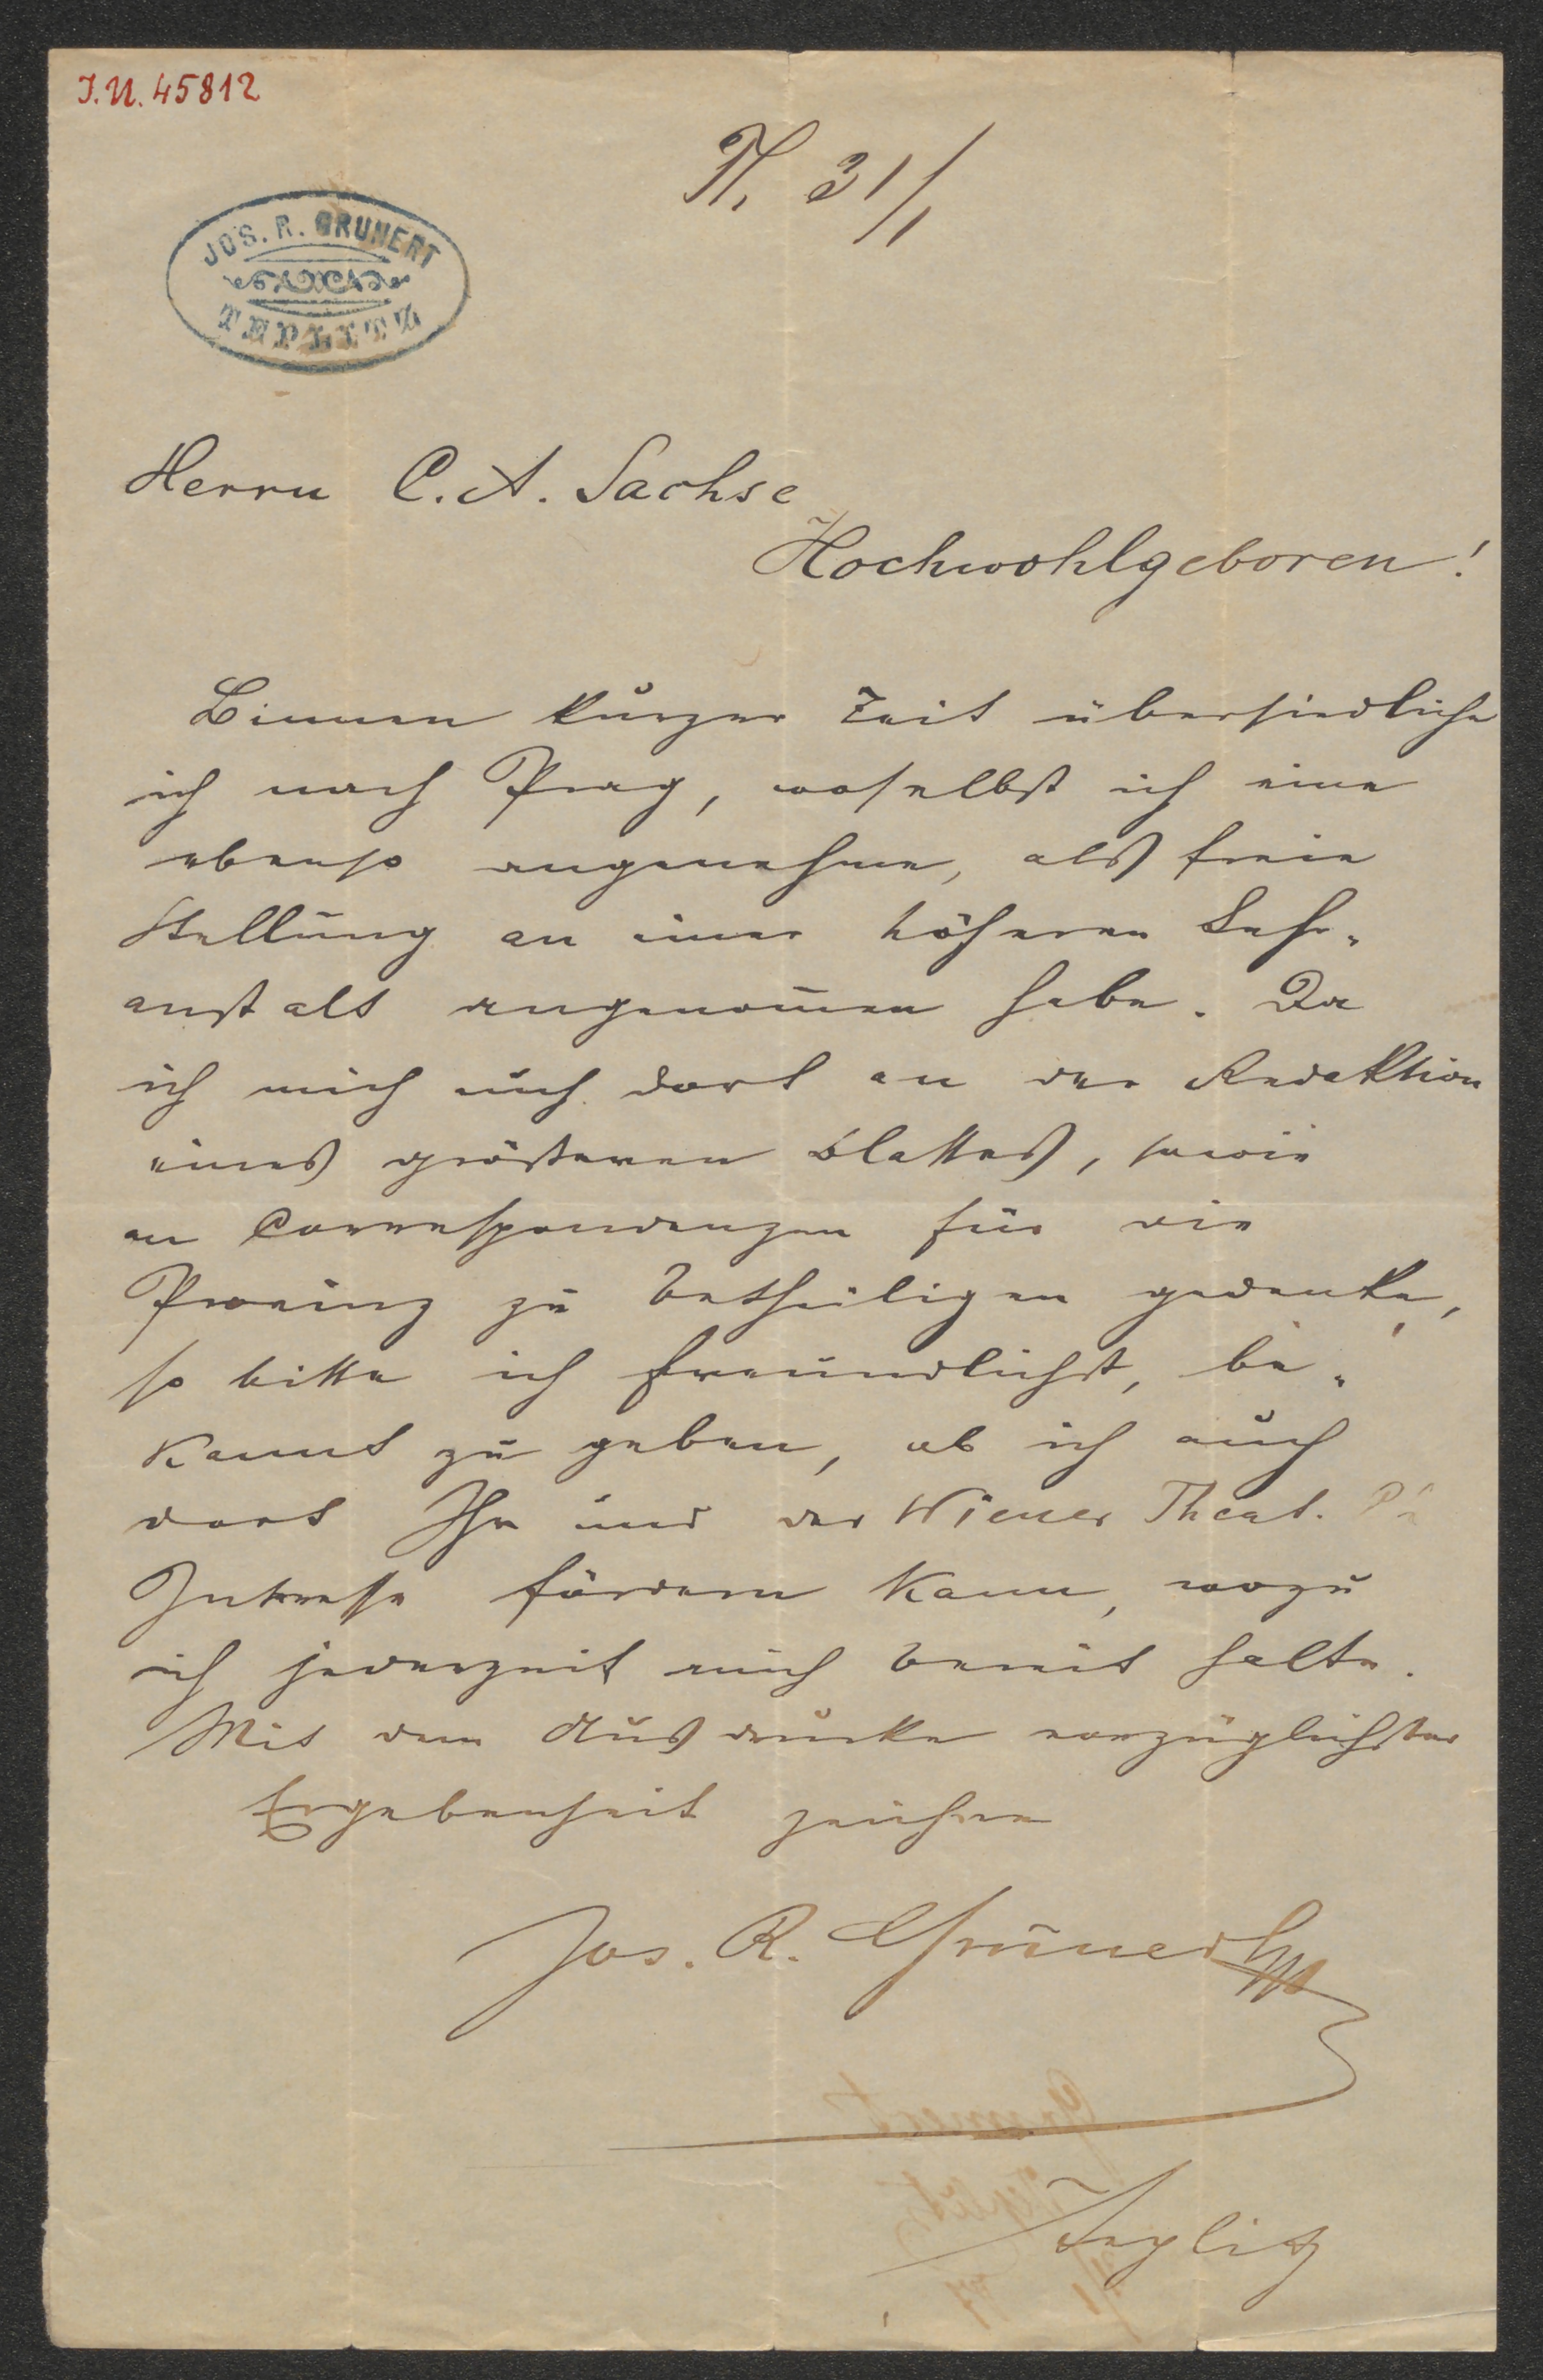 I.N. 45812
T. 31/1
JOS. R. GRUNERT
TEPLITZ
Herrn C. A. Sachse
Hochwohlgeboren!
Binnen kurzer Zeit übersiedliche
ich nach Prag, woselbst ich eine
ebenso angenehme, als freie
Stellung an einer höheren Lehr-
anstalt angenom̄en habe. Da
ich mich auch dort an der Redaktion
eines größeren Blattes, sowie
an Correspondenzen für die
Provinz zu betheiligen gedenke,
so bitte ich freundlichst, be-
kannt zu geben, ob ich auch
dort Ihr und der Wiener Theat.
Interesse fördern kann, wozu
ich jederzeit mich bereit halte.
Mit dem Ausdrucke vorzüglichster
Ergebenheit zeichne
Jos. R. Grunert
Teplitz